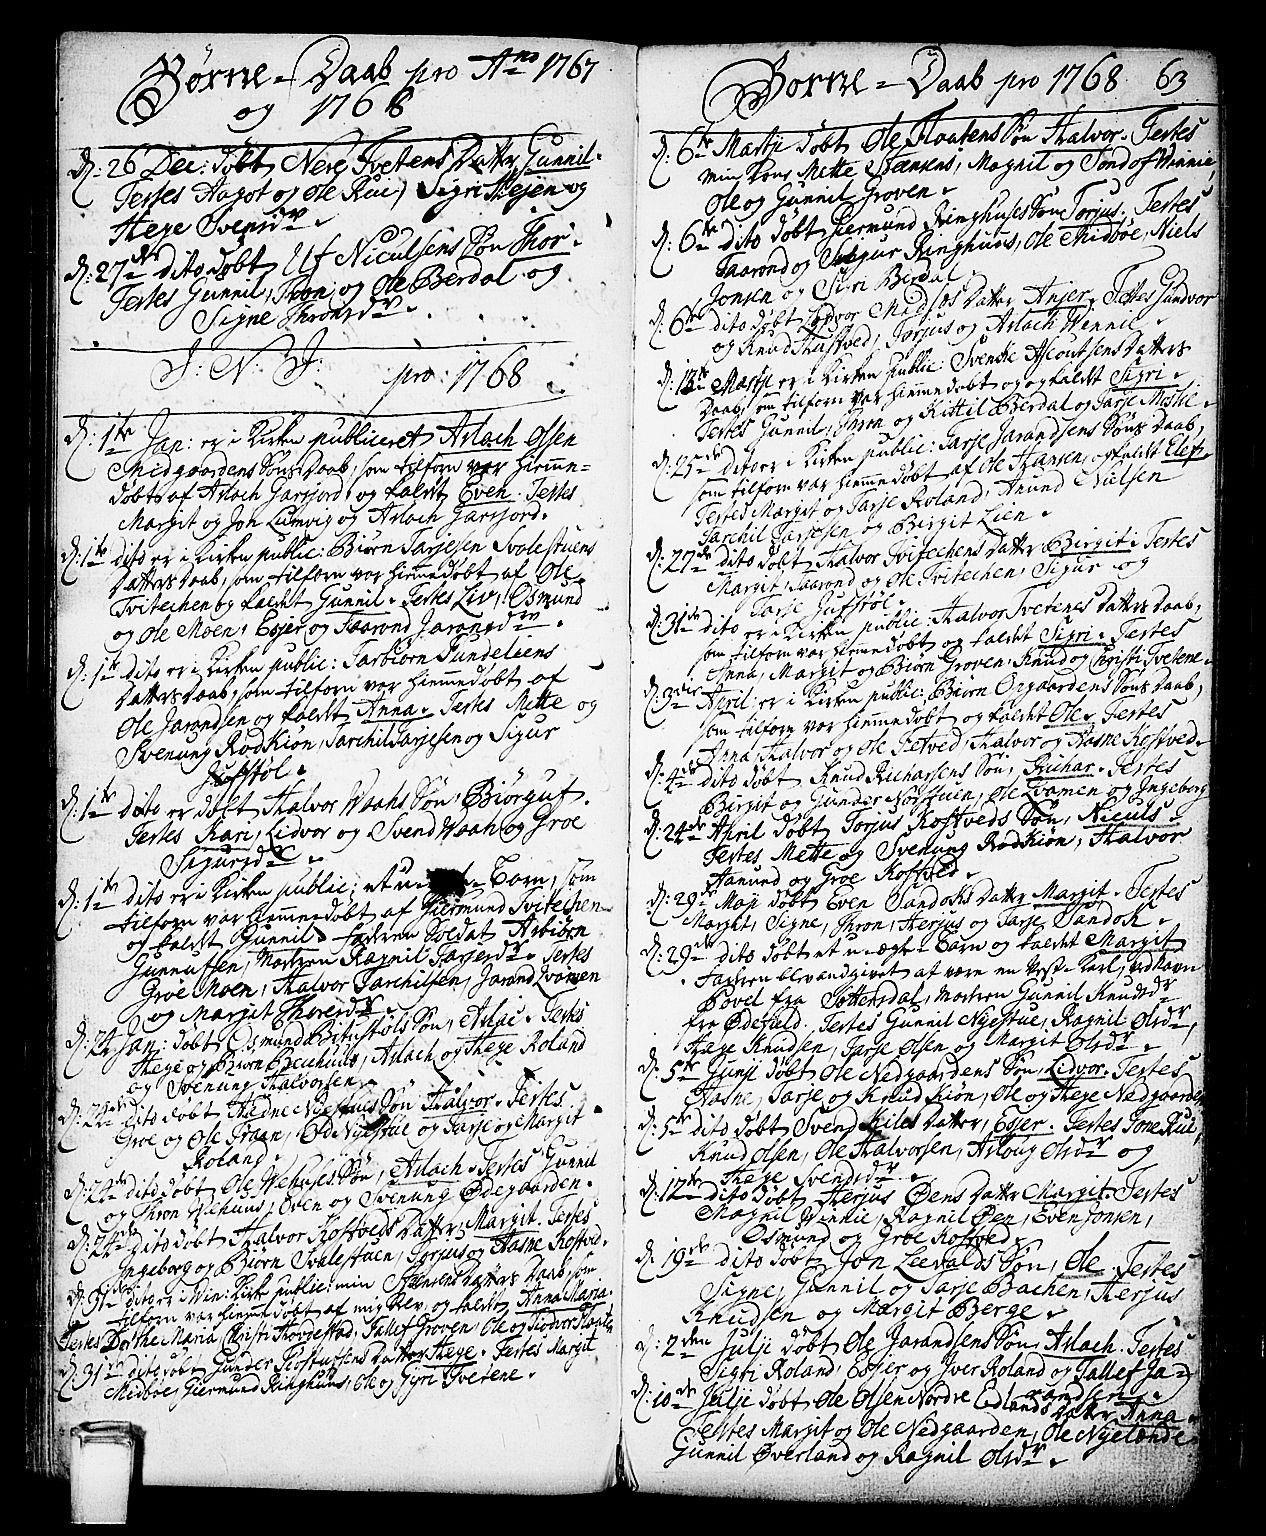 Børne-Daab pro Ano 1767
og 1768
D: 26 Dec: døbt Nere Tvetens Datter Gunnil.
Testes Aagot og Ole Rue, Sigri Mejen og
Hege Svensdr.
D: 27de dito døbt Ulf Niculsens Søn Thor.
Testes Gunnil, Thron, og Ole Berdal og
Signe Thronsdr.
J: N: J: pro 1768
D: 1te Jan: er i Kirken publiceret Aslach Olsen
Midgaardens Søns Daab, som tilforn var hiemme-
døbt af Aslach Garsjord, og kaldet Even. Testes
Margit og Jon Lumvig og Aslach Garsjord.
D: 1te dito er i Kirken public: Biørn Tarjesen Svalestuens
Datters Daab, som tilforn var hiemmedøbt af Ole
Tvitechen og kaldet Gunnil. Testes Liv, Osmund
og Ole Moen, Esjer og Taarond Jaransdr.
D: 1te dito er i Kirken public: Tarbiørn Tundeliens
Datters Daab, som tilforn var hiemmedøbt af
Ole Jarandsen og kaldet Anna. Testes Mette og
Svenung Rodkiøn, Tarchil Tarjesen og Sigur
Jufstøl.
D: 1te dito er døbt Halvor Waahs Søn, Biørguf.
Testes Kari, Lidvor og Svend Waah og Groe
Sigursdr.
D: 1te dito er i Kirken public; et u Barn, som
tilforn var hiemmedøbt af Giermund Tvitechen
og kaldet Gunnil, faderen Soldat Asbiørn
Gunnufsen, Moderen Ragnil Tarjesdr. Testes
Groe Moen, Halvor Tarchilsen, Jarand Kvamen
og Margit Thoresdr.
D: 24 Jan: døbt Osmund Bitustøls Søn, Aslac. Testes
Hege og Biørn Bechuus, Aslach og Hege Roland
og Svenung Halvorsen.
dito døbt Hedne Nyehuus Søn Halvor. Testes
Groe og Ole Graan, Od Nyestul og Tarje og Margit
Roland.
dito døbt Ole Wehuses Søn, Aslach. Testes Gunnil
og Thron Niehuus, Even og Svenung Ødegaarden.
dito døbt Halvor Kostveds Datter, Margit. Testes
Ingeborg og Biørn Svalestuen, Torjus og Aasne Kostved.
D: 31 dito er i Vin: Kirke public: min Datters Daab, som
tilforn var hiemmedøbt af mig Selv, og kaldet Anna Maria.
Testes Dorthe Maria, Christi Hovdestad, Tallef Groven, Ole og
D: 31 dito døbt Gunder Datter Hege. Testes Margit
Midbøe, Giermund Ringhuus, Ole og Gyri Tvetene.
Børne-Daab pro 1768 63
D: 6te Martji døbt Ole Flaatens Søn Halvor. Testes
min Kone Mette Stensens, Magnil og Tond of Vinnie,
Ole og Gunnil Groven.
D: 6te dito døbt Giermund Ringhuses Søn Torjus. Testes
Taarond og Sigur Ringhuus, Ole Midbøe, Niels
Jonsen og Siri Berdal.
D: 6te dito døbt Datter Anjer. Testes Gundvor
og Knud Haftved, Torjus og Aslach Vinnil.
D: 13te Martji er i Kirken public: Svenke Datters
Daab, som tilforn var hiemmedøbt og og kaldet Sigri.
Testes Gunnil, Thron og Kittil Berdal og Tarje
D: 25de dito er i Kirken public: Tarje Jarandsens Søns Daab,
som tilforn var hiemmedøbt af Ole Hansen, og kaldet Elef.
Testes Margit og Tarje Roland, Anund Nielsen
Tarchil Tarjesen og Birgit Lien.
D: 27de dito døbt Halvor Tvitechens Datter Birgit. Testes
Margit, Taarond og Ole Tvitechen, Sigur og
Tarje Jufstøl.
D: 31te dito er i Kirken public: Halvor Tvetenes Datters Daab,
som tilforn var hiemmedøbt og kaldet Sigri. Testes
Anna, Margit og Biørn Groven, Knud og Christi Tvetene.
D: 3die April er i Kirken public: Biørn Opgaardens Søns Daab,
som tilforn var hiemmedøbt og kaldet Ole. Testes
Anna, Halvor og Ole Fetved, Halvor og Aasne Kostved.
D: 4de dito døbt Knud Richarsens Søn, Richar. Testes
Birgit og Gunder Norstuen, Ole Kvamen og Ingeborg
D: 24de April døbt Torjus Kostveds Søn, Niculs.
Testes Mette og Svenung Rodkiøn, Halvor
Aamund og Groe Kostved.
D: 29de Maji døbt Even Sandoks Datter Margit. Testes
Margit, Signe, Thron, Herjus og Tarje Sandok.
D: 29de dito døbt et u-ægte Barn og kaldet Margit
Faderen blev andgivet af være en Vest. Karl, ved Navn
Povel fra Sættersdal, Moderen Gunnil Knudsdr
fra Ødefield. Testes Gunnil Nyestue, Ragnil Olsdr,
Hege Knudsen, Tarje Olsen og Margit Olsdr.
D: 5te Junji døbt Ole Nedgaardens Søn, Lidvor. Testes
Aasne, Tarje og Knud Kiøn, Ole og Hege Nedgaarden
D: 5te dito døbt Svend Kiles Datter, Esjer. Testes Tone Rue,
Knud Olsen, Ole Halvorsen, Aslaug Olsdr og
Hege Svendsdr.
D: 12te dito døbt Herjus Øens Datter Margit. Testes
Magnil Vinnie, Ragnil Øen, Even Jonsen,
Osmund og Groe Kostved.
D: 19de dito døbt Jon Leevalds Søn, Ole. Testes
Signe, Gunnil og Tarje Bachen, Herjus
Knudsen og Margit Berge.
D: 2den Julji døbt Ole Jarandsens Søn, Aslach. Testes
Sigri Roland, Esjer og Iver Roland og Tallef Ja-
randsen.
D: 10de Julji døbt Ole Olsen Nordre Edlands Datter Anna.
Testes Margit og Ole Nedgaarden, Ole Nyelænde
Gunnil Øverland og Ragnil Olsdr.